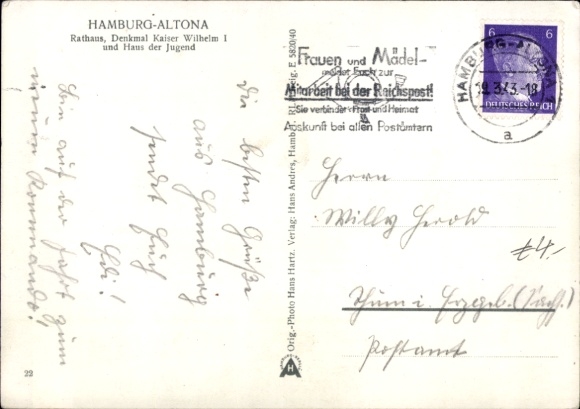 HAMBURG-ALTONA
Rathaus, Denkmal Kaiser Wilhelm I
und Haus der Jugend
Die besten Grüße
aus Hamburg
sendet Euch
Edi!
Bin auf der Fahrt zum
neuen Kommando!
22
Orig.-Photo Hans Hartz. Verlag: Hans Andres, Hamburg
E 5820/40
Frauen und Mädel-
meldet Euch zur
Mitarbeit bei der Reichspost!
Sie verbindet Front und Heimat
Auskunft bei allen Postämtern
HAMBURG-ALTONA
19.3.43.-18
a
6 6
DEUTSCHES REICH
Herrn
Willy Herold
£4,-
Thum i. Erzgeb. (Sachs.)
Postamt
H